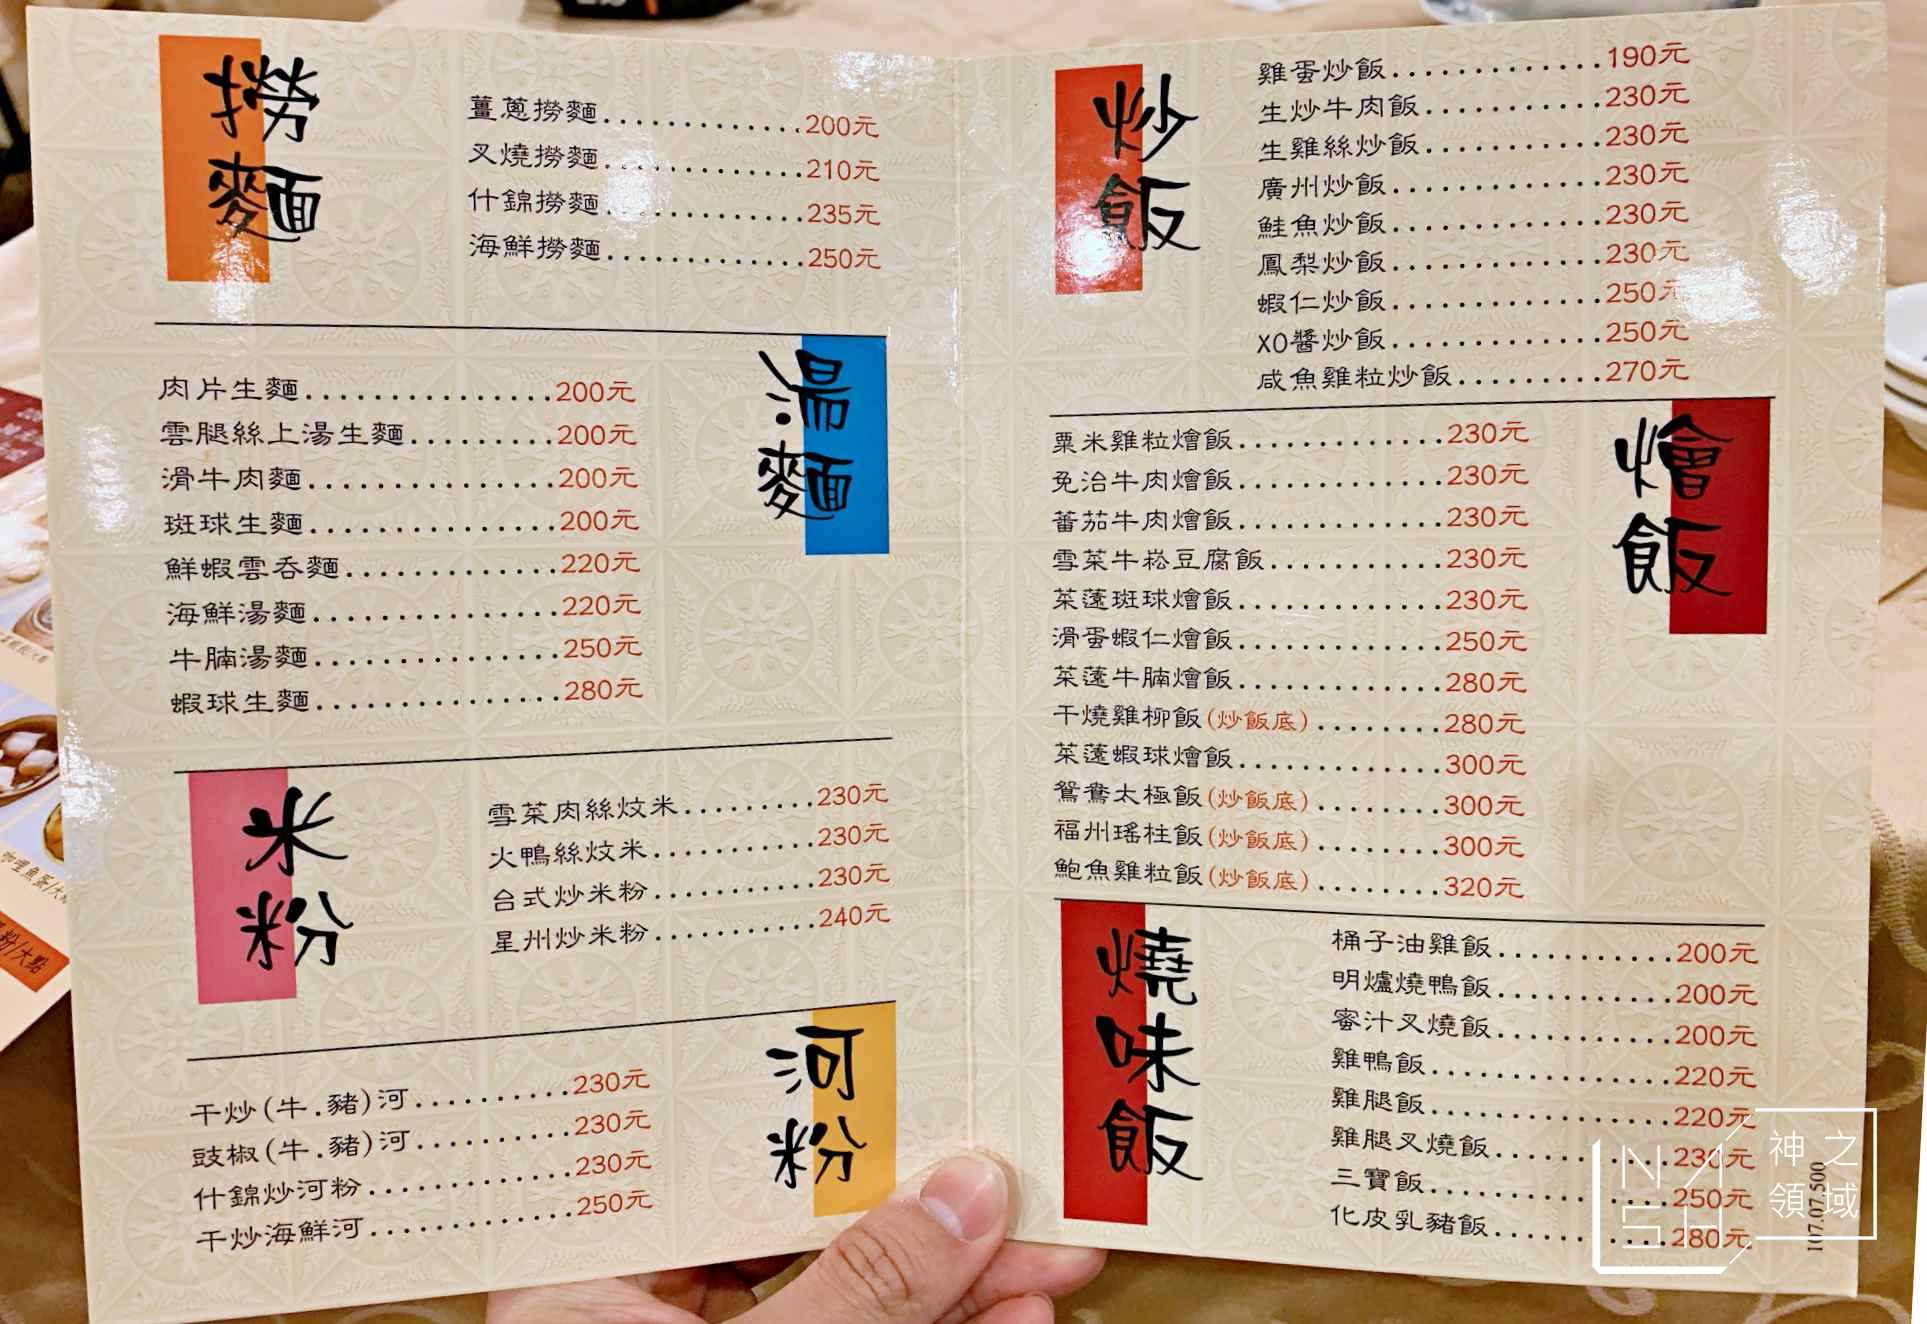 撈麵
薑蔥撈麵.............200元
叉燒撈麵.............210元
什錦撈麵.............235元
海鮮撈麵.............250元
湯麵
肉片生麵................200元
雲腿絲上湯生麵.........200元
滑牛肉麵................200元
斑球生麵................200元
鮮蝦雲吞麵..............220元
海鮮湯麵................220元
牛腩湯麵................250元
蝦球生麵................280元
米粉
雪菜肉絲炆米.........230元
火鴨絲炆米...........230元
台式炒米粉...........230元
星州炒米粉...........240元
河粉
干炒(牛.豬)河..........230元
豉椒(牛.豬)河..........230元
什錦炒河粉.............230元
干炒海鮮河.............250元
炒飯
雞蛋炒飯..............190元
生炒牛肉飯............230元
生雞絲炒飯............230元
廣州炒飯..............230元
鮭魚炒飯..............230元
鳳梨炒飯..............230元
蝦仁炒飯..............250元
XO醬炒飯..............250元
咸魚雞粒炒飯..........270元
燴飯
粟米雞粒燴飯.............230元
免治牛肉燴飯.............230元
蕃茄牛肉燴飯.............230元
雪菜牛崧豆腐飯...........230元
菜薳斑球燴飯.............230元
滑蛋蝦仁燴飯.............250元
菜薳牛腩燴飯.............280元
干燒雞柳飯(炒飯底)........280元
菜薳蝦球燴飯.............300元
鴛鴦太極飯(炒飯底)........300元
福州瑤柱飯(炒飯底)........300元
鮑魚雞粒飯(炒飯底)........320元
燒味飯
桶子油雞飯...........200元
明爐燒鴨飯...........200元
蜜汁叉燒飯...........200元
雞鴨飯...............220元
雞腿飯...............220元
雞腿叉燒飯...........230元
三寶飯...............250元
化皮乳豬飯...........280元
107.07.500
NASH
神之
領域
大點